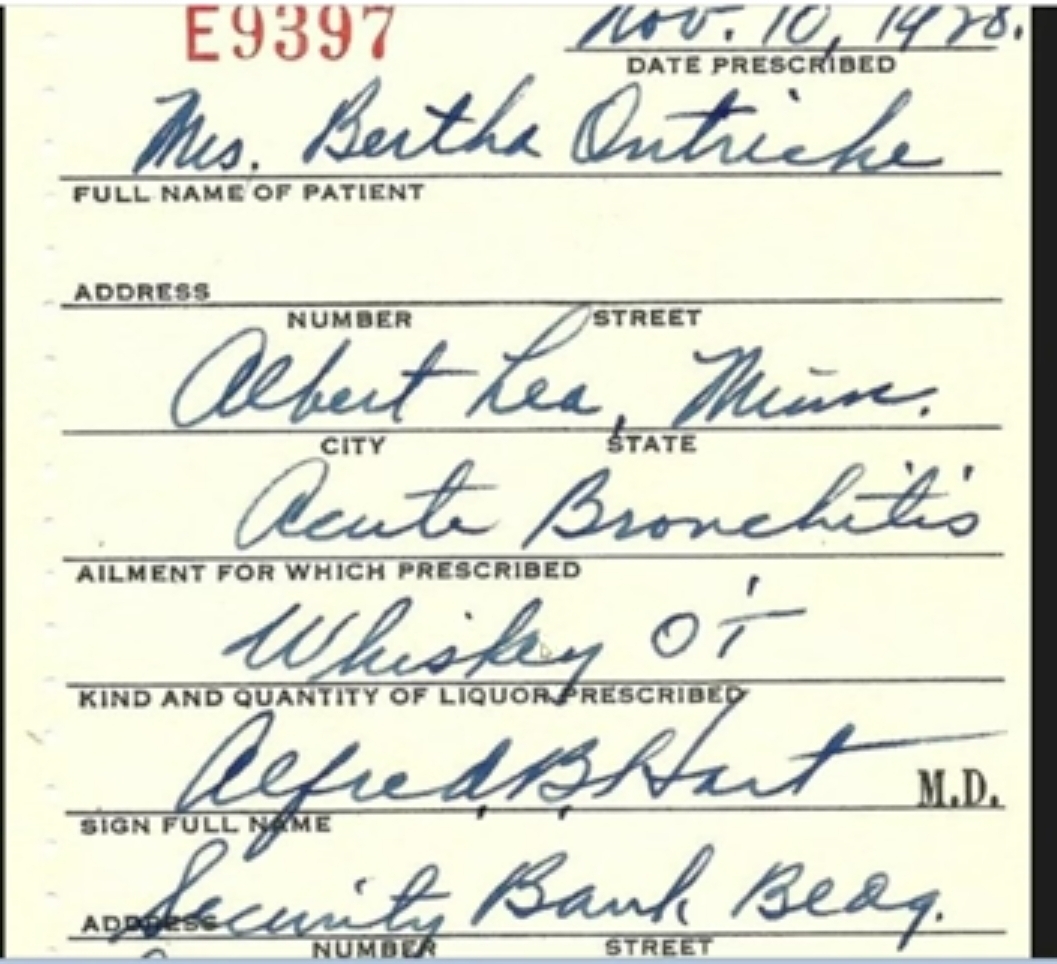 E9397
Nov. 10, 1928.
DATE PRESCRIBED
Mrs. Bertha
FULL NAME OF PATIENT
ADDRESS
NUMBER STREET
Albert Lea, Minn.
CITY STATE
Acute Bronchitis
AILMENT FOR WHICH PRESCRIBED
Whiskey
KIND AND QUANTITY OF LIQUOR PRESCRIBED
Alfred B. Hart M.D.
SIGN FULL NAME
Security Bank Bldg.
ADDRESS
NUMBER STREET